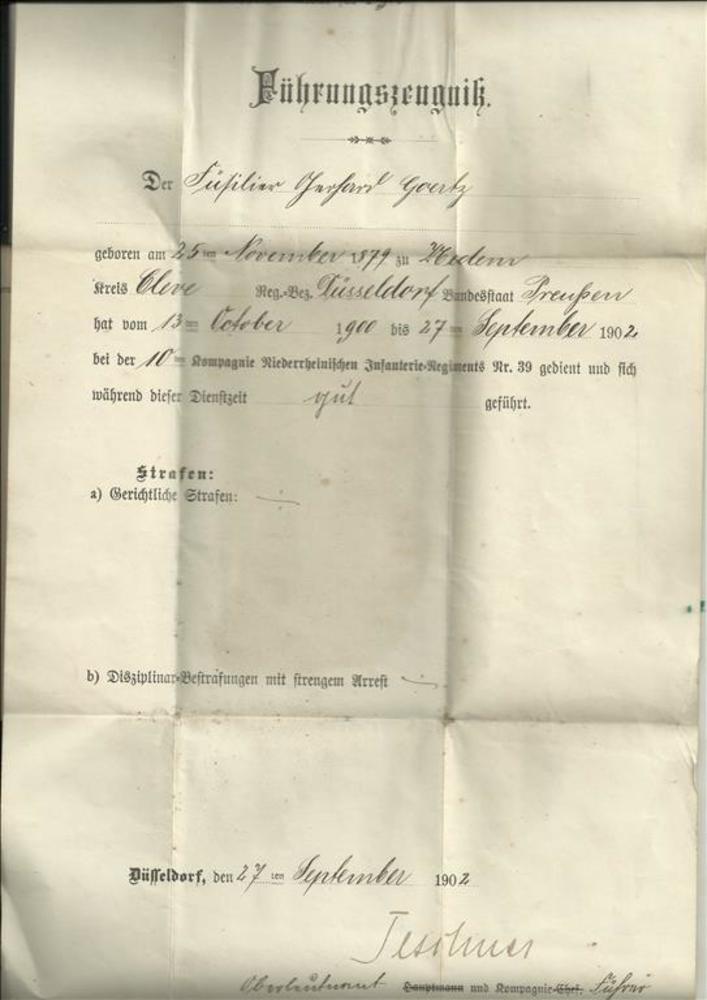 Führungszeugniß.
Der Füsilier Gerhard Goertz
geboren am 25ten November 1879 zu
Kreis Cleve Reg.-Bez. Düsseldorf Bundesstaat Preußen
hat vom 13ten October 1900 bis 27ten September 1902
bei der 10ten Kompagnie Niederrheinischen Infanterie-Regiments Nr. 39 gedient und sich
während dieser Dienstzeit gut geführt.
Strafen:
a) Gerichtliche Strafen: ÷
b) Disziplinar-Bestrafungen mit strengem Arrest ÷
Düsseldorf, den 27ten September 1902
Oberleutnant Hauptmann und Kompagnie-Chef. Führer